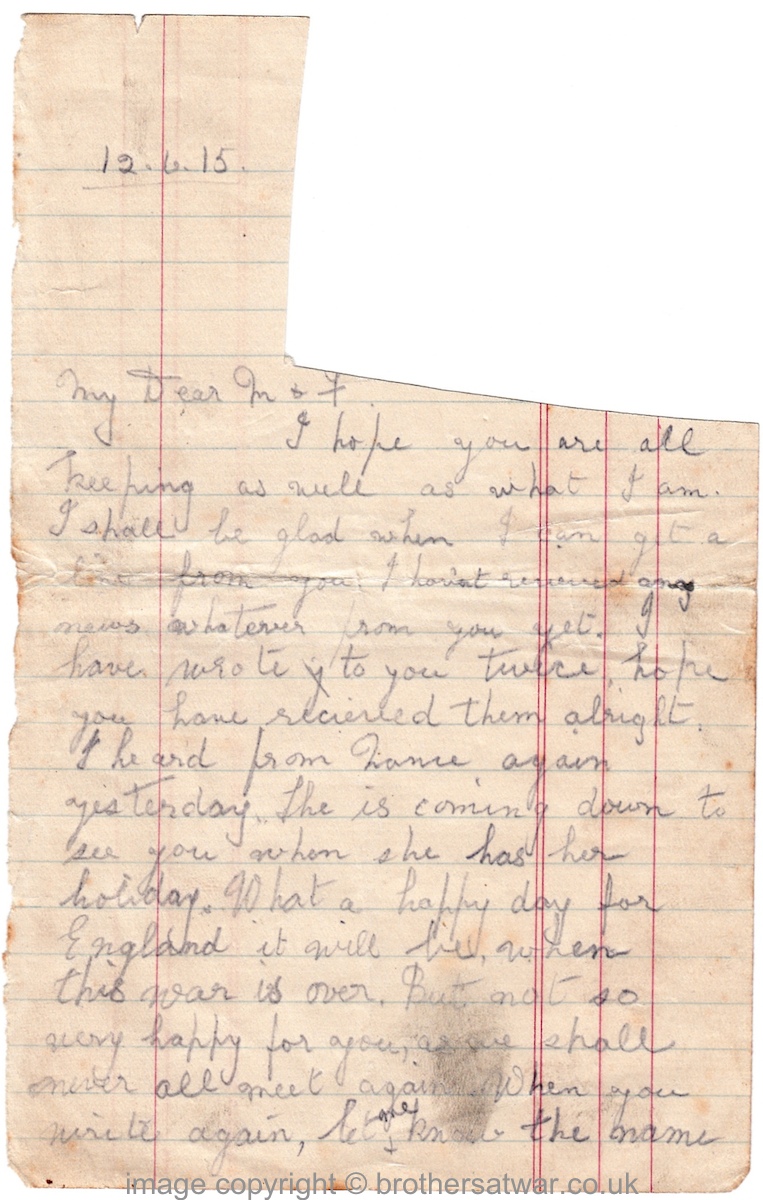 12.6.15.
My Dear M & F.
I hope you are all
keeping as well as what I am.
I shall be glad when I can get a
line from you. I havn't recieved any
news whatever from you yet. I
have wrote to you twice, hope
you have recieved them alright.
I heard from again
yesterday. She is coming down to
see you when she has her
holiday. What a happy day for
England it will be, when
this war is over. But not so
very happy for you, as we shall
never all meet again. When you
write again, let me know the name
image copyright © brothersatwar.co.uk